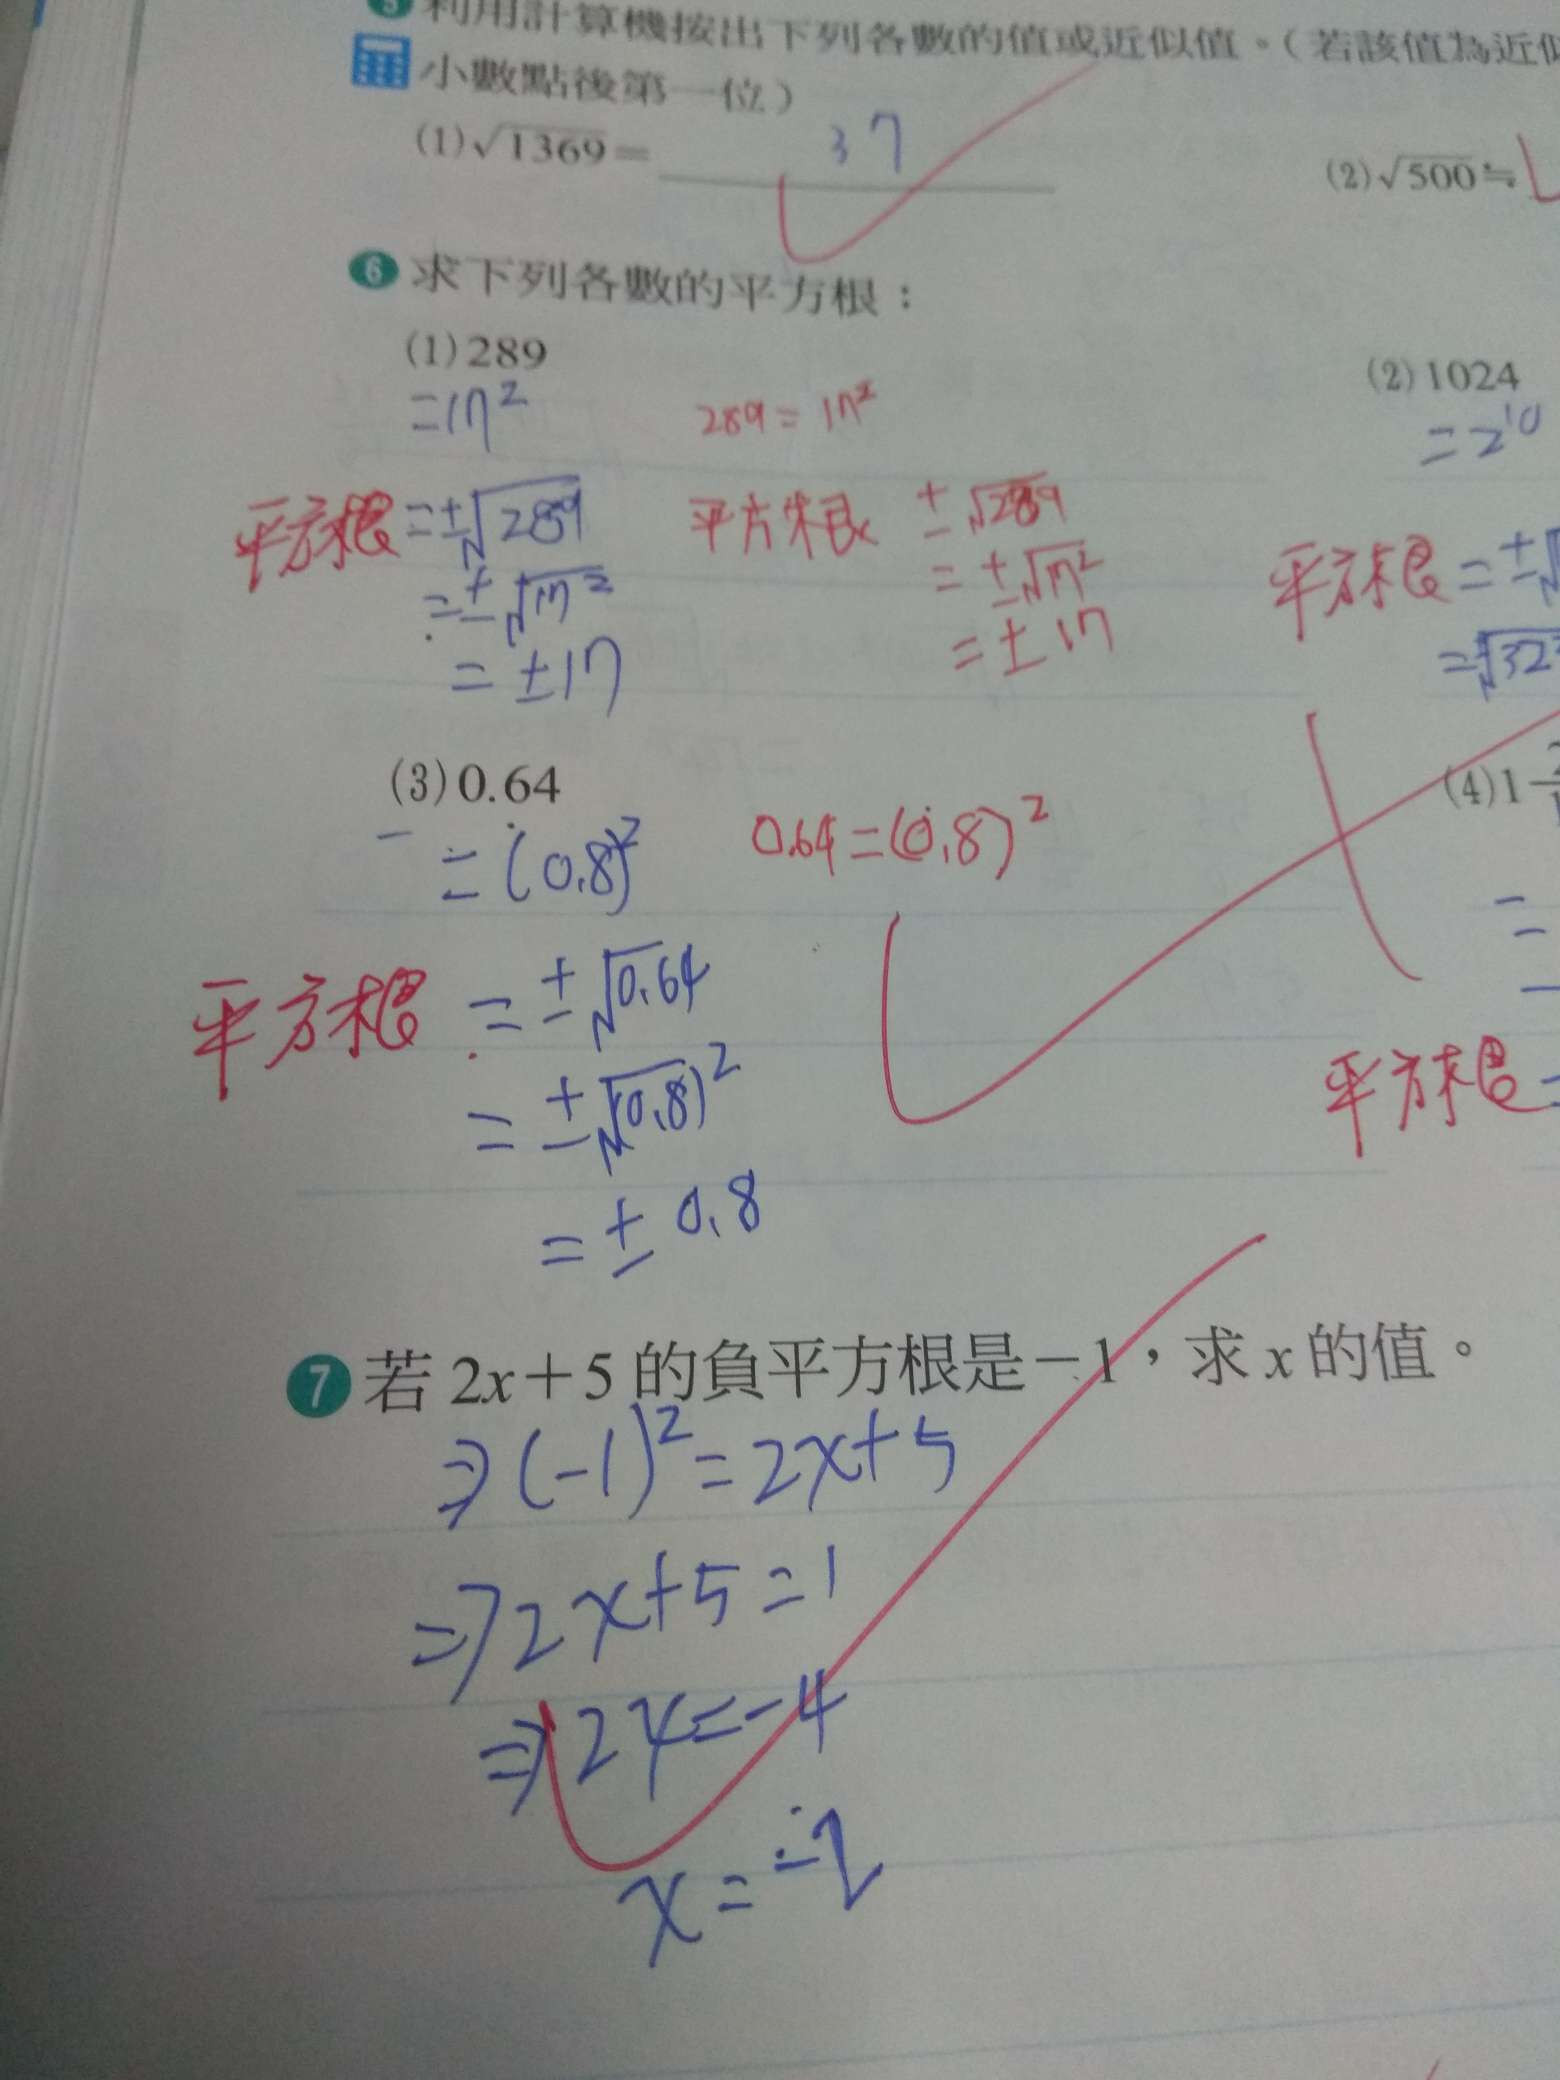 5 利用計算機按出下列各數的值或近似值。(若該值為近似
小數點後第一位)
(1)√1369= 37
(2)√500≒
6 求下列各數的平方根：
(1)289
=17²
289=17²
平方根=±√289
=±√17²
=±17
平方根 ±√289
=±√17²
=±17
(2)1024
=2¹⁰
平方根=±√
=√32²
(3)0.64
=(0.8)²
0.64=(0.8)²
平方根=±√0.64
=±√(0.8)²
=±0.8
(4)1
平方根=
7 若2x+5的負平方根是-1，求x的值。
⇒(-1)²=2x+5
⇒2x+5=1
⇒2x=-4
x=-2